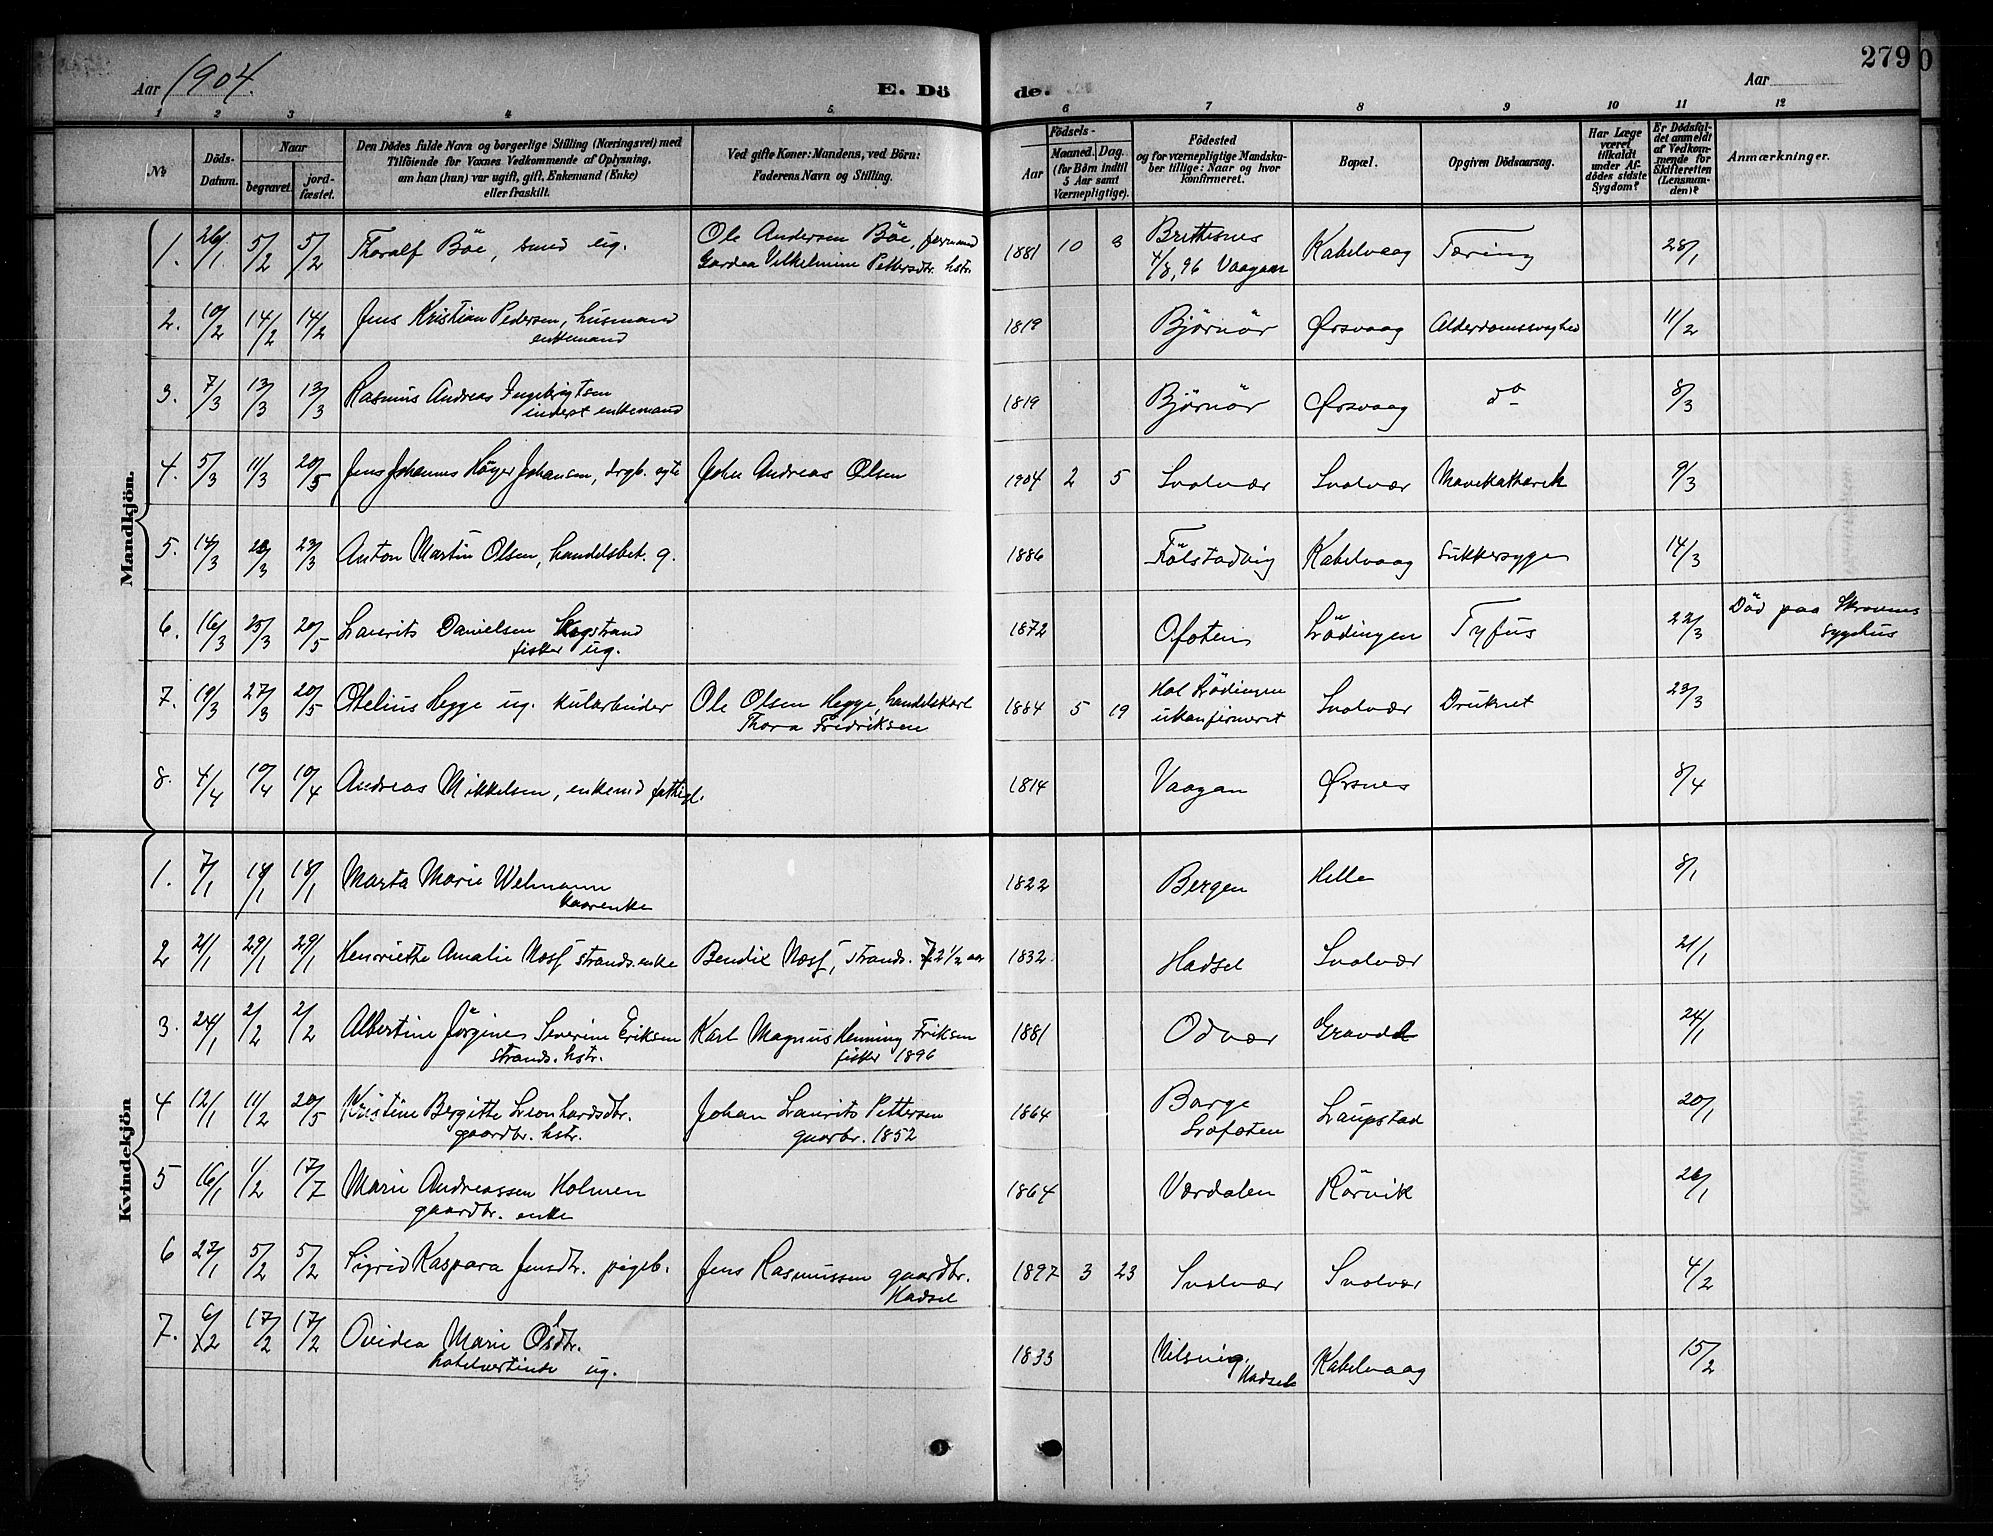 Aar 1904. E. Dö de. Aar 279
1 2 3 4 5. 6 7 8 9 10 11 12
No Döds-Datum. Naar begravet. jord-fæstet. Den Dödes fulde Navn og borgerlige Stilling (Næringsvei) med Tilföiende for Voxnes Vedkommende af Oplysning, om han (hun) var ugift, gift, Enkemand (Enke) eller fraskilt. Ved gifte Koner: Mandens, ved Börn: Faderens Navn og Stilling. Födsels- Aar Maaned. Dag. (for Börn indtil 5 Aar samt Værnepligtige). Födested og for værnepligtige Mandskaber tillige: Naar og hvor konfirmeret. Bopæl. Opgiven Dödsaarsag. Har Læge været tilkaldt under Afdödes sidste Sygdom? Er Dödsfaldet anmeldt af Vedkommende for Skifteretten (Lensmanden)? Anmærkninger.
Mandkjön.
1. 26/1 5/2 5/2 Thoralf Böe, smed ug. Ole Andersen Böe, 1881 10 8 Brettesnes Kabelvaag Tæring 28/1
Vilhelmine Pettersdtr. hstr. 4/8, 96 Vaagan
2. 10/2 14/2 14/2 Jens Kristian Pedersen, husmand 1819 Björnör Ørsvaag Alderdomssvaghed 11/2
enkemand
3. 7/3 13/3 13/3 Rasmus Andreas Ingebrigtsen 1819 Björnör Ørsvaag do 8/3
inderst enkemand
4. 5/3 11/3 20/5 Jens Johannes Höyer Johansen, drgb. ægte John Andreas Olsen 1904 2 5 Svolvær Svolvær Mavekattarrh 9/3
5. 14/3 23/3 23/3 Anton Martin Olsen, handelsbet. g. 1886 Fölstadvig Kabelvaag Sukkersyge 14/3
6. 16/3 25/3 20/5 Laurits Danielsen 1872 Ofoten Lödingen Tyfus 22/3 Död paa Skrovens
fisker ug. Sygehus
7. 19/3 27/3 20/5 Otelius Hegge ug. kularbeider Ole Olsen Hegge, handelskarl 1884 5 19 Hol Lödingen Svolvær Druknet 23/3
Thora Fredriksen ukonfirmeret
8. 4/4 10/4 10/4 Andreas Mikkelsen, enkemd fattigl. 1814 Vaagan Ørsnes 8/4
Kvindekjön
1. 7/1 18/1 18/1 Marta Marie Welmann 1822 Bergen Helle 8/1
kaarenke
2 21/1 29/1 29/1 Henriette Amalie Næss strands.enke Bendix Næss, strands. 1832 Hadsel Svolvær 21/1
3. 24/1 2/2 2/2 Albertine Jörgine Severine Eriksen Karl Magnus Henning Eriksen 1881 Odvær Gravdal 24/1
strands. hstr. fisker 1896
4 12/1 11/2 20/5 Kristine Bergitte Leonhardsdtr. Johan Laurits Pettersen 1864 Borge Laupstad 20/1
gaardbr. hstr. gaarbr. 1852 Lofoten
5 16/1 1/2 17/7 Marie Andreassen Holmen 1864 Værdalen Rörvik 26/1
gaardbr. enke
6 27/1 5/2 5/2 Sigrid Kaspara Jensdtr. pigeb. Jens Rasmussen gaardbr. 1897 3 23 Svolvær Svolvær 4/2
Hadsel
7. 6/2 17/2 17/2 Ovidea Marie Olsdtr. 1833 Kabelvaag 15/2
hotelvertinde ug. Hadsel